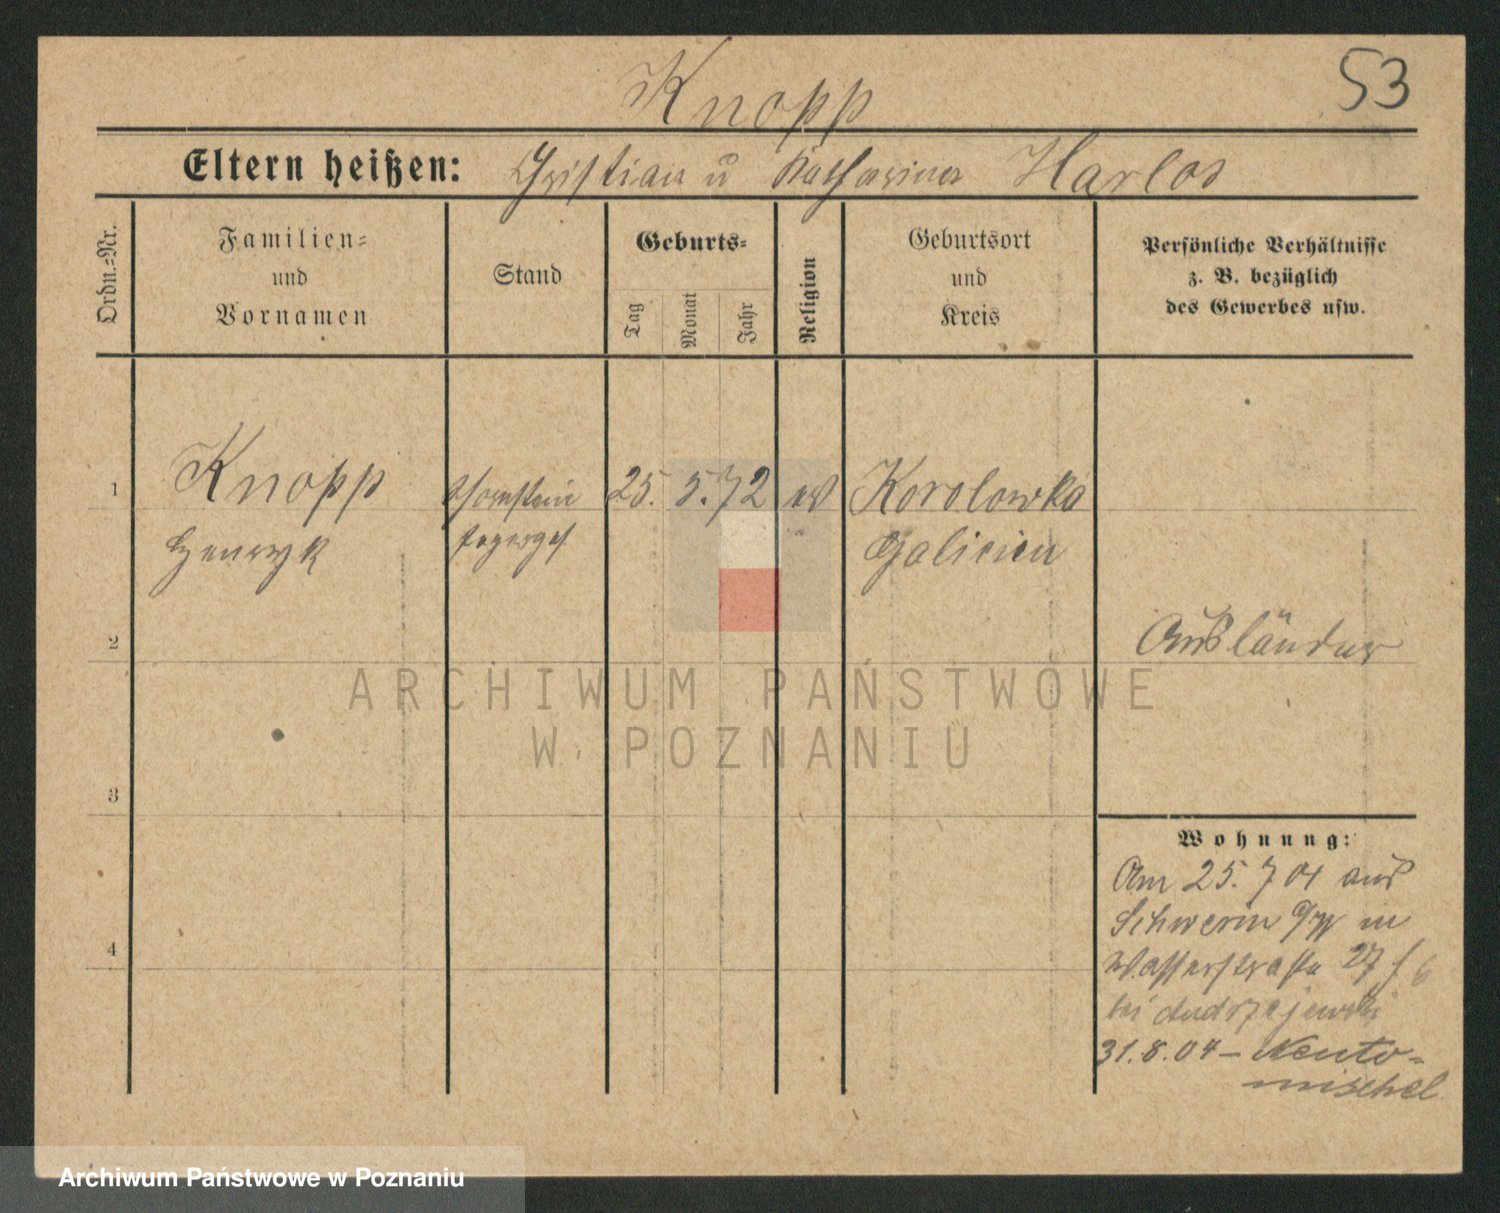 53
Knopp
Eltern heißen: Christian u Katharina Harlos
Ordn.=Nr.
Familien=
und
Vornamen
Stand
Geburts=
Tag
Monat
Jahr
Religion
Geburtsort
und
Kreis
Persönliche Verhältnisse
z. B. bezüglich
des Gewerbes usw.
1
Knopp
Henryk
Schornstein
fegergs
25. 5. 72
ev
Korolowka
Galicien
2
Ausländer
3
4
Wohnung:
Am 25. 7 04 aus
Schwerin a/W in
Wasserstraße 27
bei Andrzejewski
31.8.04 – Neuto=
mischel
ARCHIWUM PAŃSTWOWE
W POZNANIU
Archiwum Państwowe w Poznaniu